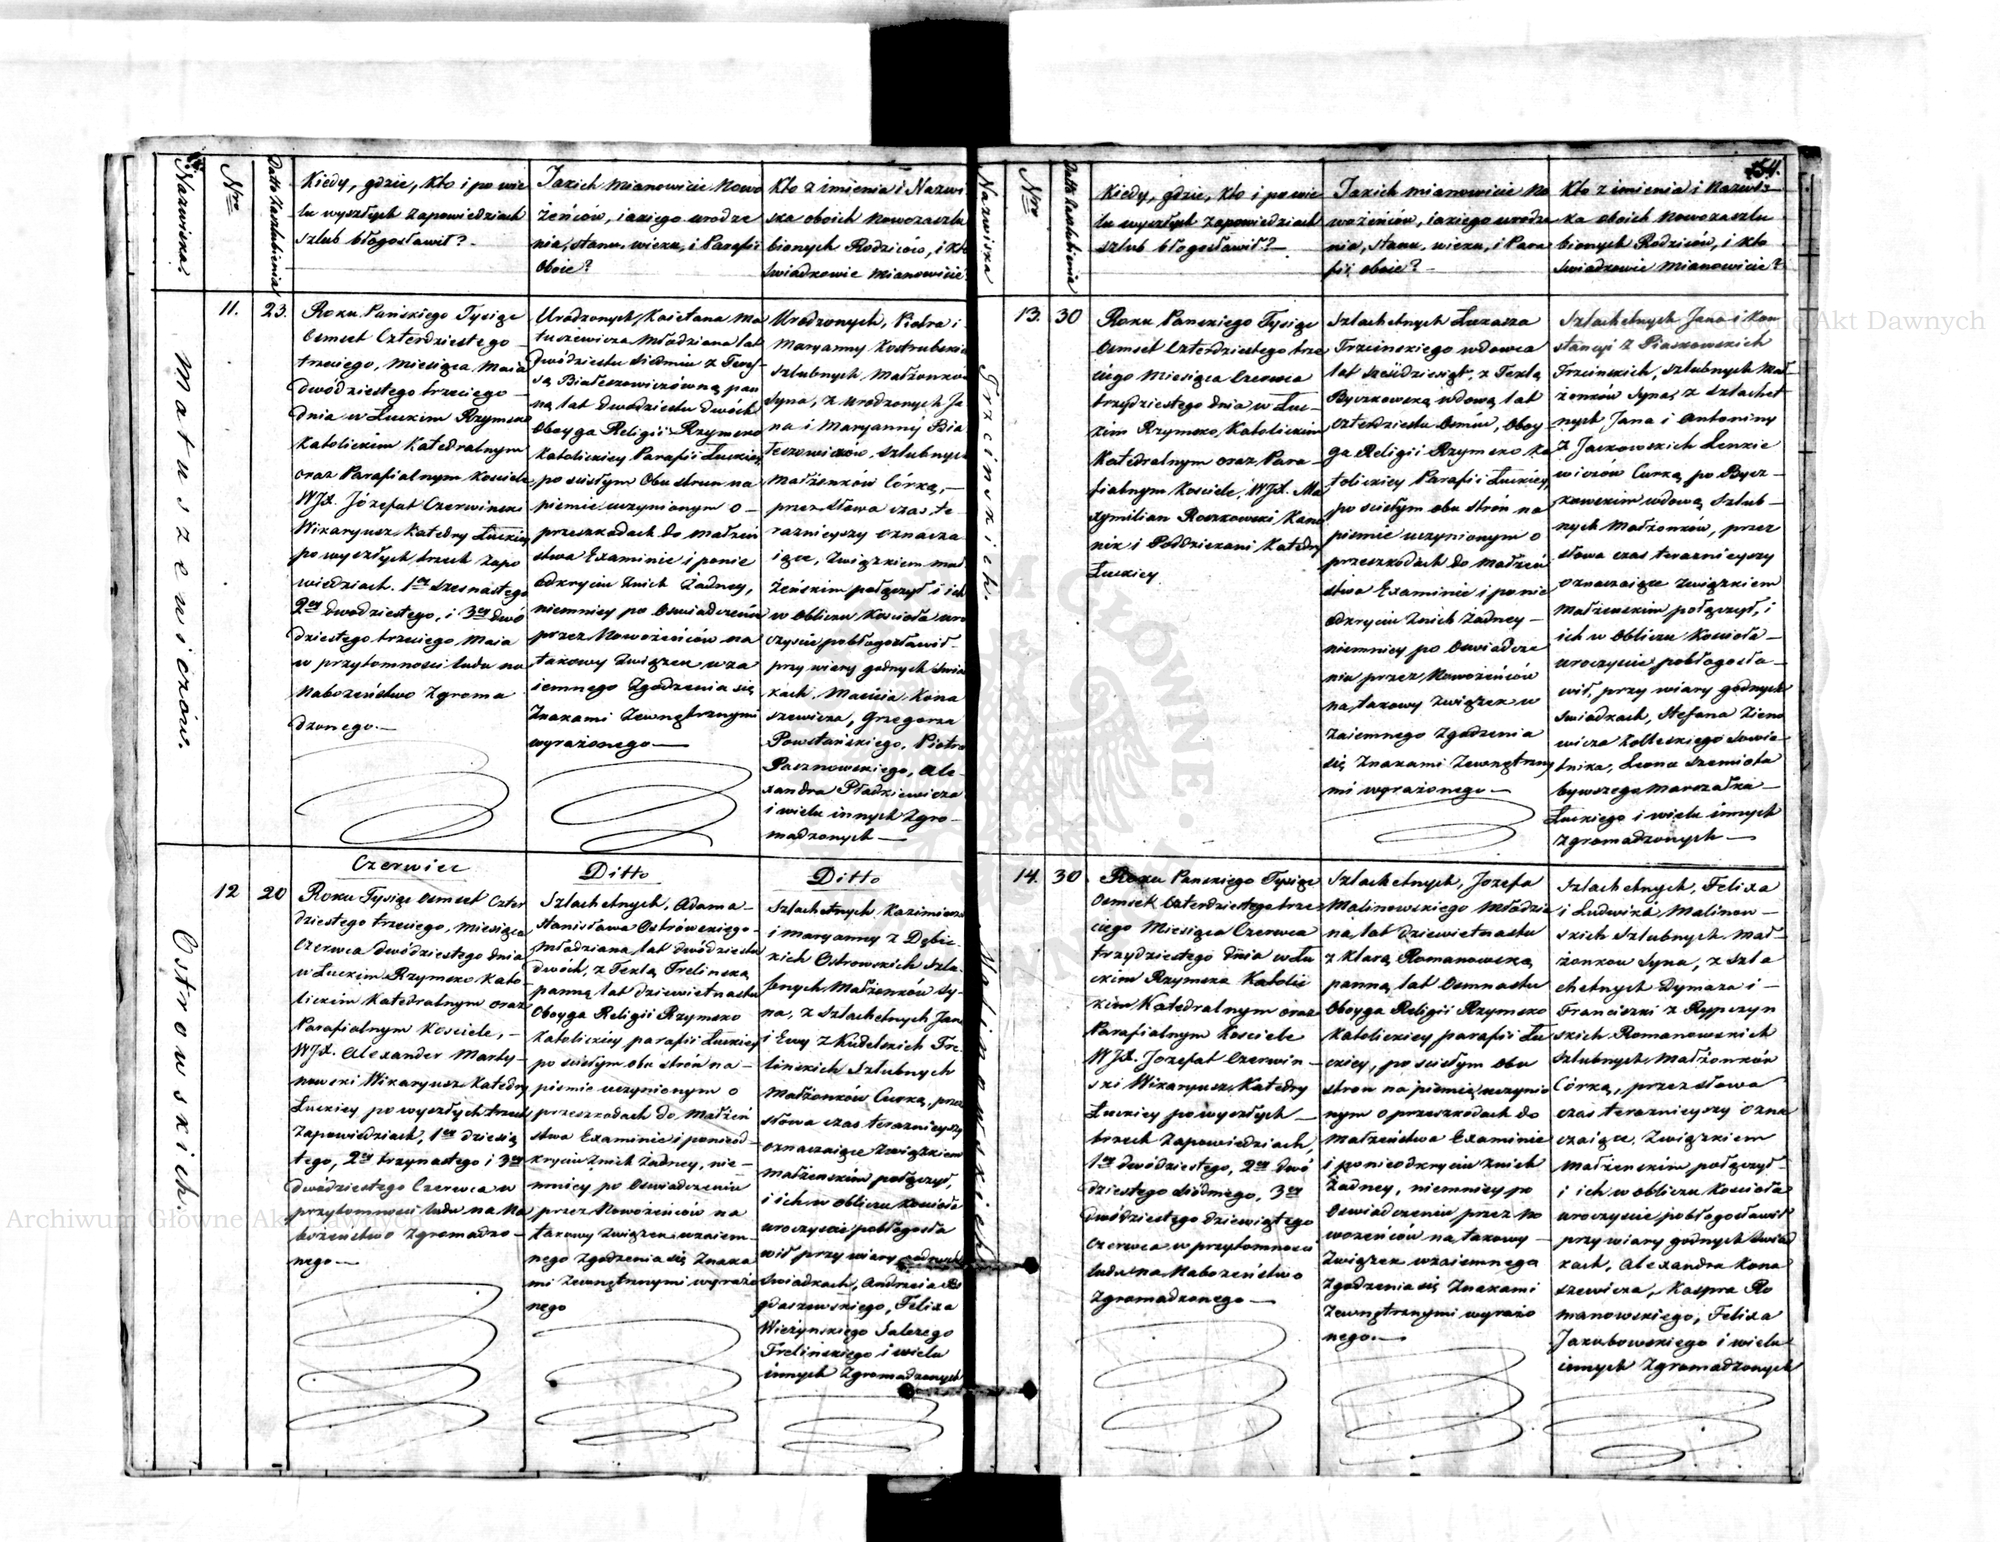 Nazwiska.
Nro
Data Zaslubienia
Kiedy, gdzie, Kto i po wie
lu wyszłych Zapowiedziach
szlub błogosławił?
Jakich mianowicie Nowo
żeńców, iakiego urodze
nia, stanu, wieku, i Parafii
oboie?
Kto z imienia i Nazwi
ska oboich Nowozaszlu
bionych Rodziców, i Kto
Swiadkowie mianowicie
Matuszewiczów.
11.
23.
Roku Pańskiego Tysiąc
Osmset Czterdziestego
trzeciego, Miesiąca Maia
dwódziestego trzeciego
dnia w Łuckim Rzymsko
Katolickim Katedralnym
oraz Parafialnym Kosciele
WJX. Józefat Czerwinski
Wikaryusz Katedry Łuckiey
po wyszłych trzech Zapo
wiedziach. 1szey Szesnastego
2ey dwodziestego, i 3ey dwó
dziestego trzeciego Maia
w przytomnosci ludu na
Nabożeństwo Zgroma
dzonego.—
Urodzonych, Kaietana Ma
tuszewicza Młodziana lat
dwódziestu siedmiu z Tere
są Białeszowiczówną pan
ną lat dwodziestu dwóch
Oboyga Religii Rzymsko
Katolickiey Parafii Łuckiey,
po scisłym Obu stron na
piemie uczynionym o
przeszkodach do małżeń
stwa Examinie i ponie
odkryciu Znich Żadney,
niemniey po Oswiadczeniu
przez Nowożeńców na
takowy Związek wza
iemnego Zgodzenia się
Znakami Zewnętrznymi
wyrażonego —
Urodzonych, Piotra i
Maryanny Kostrubskich
szlubnych Małżonków
Syna, z Urodzonych Ja
na i Maryanny Bia
łeszowiczów, szlubnych
Małżonków Córką,—
przez Słowa czas te
raznieyszy oznacza
iące, Związkiem mał
żeńskim połączył i ich
w Obliczu Koscioła uro
czyscie pobłogosławił
przy wiary godnych Swiad
kach, Macieia Kona
szewicza, Grzegorza
Powstańskiego, Piotra
Pasznowskiego, Ale
xandra Pładkiewicza
i wielu innych Zgro
madzonych —
Ostrowskich.
12
20
Czerwiec
Roku Tysiąc Osmset Czter
dziestego trzeciego, miesiąca
Czerwca dwódziestego dnia
w Łuckim Rzymsko Kato
lickim Katedralnym oraz
Parafialnym Kosciele,—
WJX. Alexander Marty
nowski Wikaryusz Katedry
Łuckiey po wyszłych trzech
Zapowiedziach, 1szey dziesią
tego, 2ey trzynastego i 3ey
dwódziestego Czerwca w
przytomnosci ludu na Na
bożenstwo Zgromadzo
nego —
Ditto
Szlachetnych, Adama
Stanisława Ostrowskiego
Młodziana lat dwódziestu
dwóch, z Teklą Frelinską
panną lat dziewietnastu
Oboyga Religii Rzymsko
Katolickiey parafii Łuckiey
po scisłym obu strón na
piemie uczynionym o
przeszkodach do Małżeń
stwa Examinie i ponieod
kryciu Znich Żadney, nie
mniey po Oswiadczeniu
przez Nowożeńców na
takowy Związek wzaiem
nego Zgodzenia się Znaka
mi Zewnętrznymi wyrażo
nego
Ditto
Szlachetnych Kazimierza
i Maryanny z Dębic
kich Ostrowskich Szlu
bnych Małżonków Sy
na, z Szlachetnych Jana
i Ewy z Kudelskich Fre
linskich Szlubnych
Małżonków Curką, przez
słowa czas teraznieyszy
oznaczaiące Związkiem
małżenskim połączył,
i ich w obliczu Koscioła
uroczyscie pobłogosła
wił przy wiary godnych
Swiadkach, Andrzeia
gdaszewskiego, Felixa
Wierzynskiego Salezego
Frelinskiego i wielu
innych Zgromadzonych
Nazwiska
Nro
Data Zaslubienia
Kiedy, gdzie, Kto i po wie
lu wyszłych Zapowiedziach
szlub błogosławił?—
Jakich mianowicie No
wożeńców, iakiego urodze
nia, stanu, wieku, i Para
fii oboie?—
Kto z imienia i Nazwis
ka oboich Nowozaszlu
bionych Rodziców, i Kto
Swiadkowie mianowicie?
54.
Trzcinskich.
13.
30
Roku Panskiego Tysiąc
Osmset Czterdziestego trze
ciego Miesiąca Czerwca
trzydziestego dnia w Łuc
kim Rzymsko Katolickim
Katedralnym oraz Para
fialnym Kosciele, WJX. Ma
xymilian Roszkowski Kano
nik i Poddziekani Katedry
Łuckiey
Szlachetnych Łukasza
Trzcinskiego wdowca
lat szescdziesiąt, z Teklą
Byczkowską wdową lat
czterdziestu Osmiu, Oboy
ga Religii Rzymsko Ka
tolickiey Parafii Łuckiey,
po scisłym obu strón na
piemie uczynionym o
przeszkodach do Małżeń
stwa Examinie i ponie
odkryciu Znich Żadney —
niemniey po Oswiadcze
niu przez Nowożeńców
na takowy Związek w
zaiemnego Zgodzenia
się Znakami Zewnętrzny
mi wyrażonego —
Szlachetnych Jana i Kon
stancyi z Piaskowskich
Trzcinskich, szlubnych Mał
żonków Syna, z szlachet
nych Jana i Antoniny
z Jackowskich Lenkie
wiczów Curką, po Bycz
kowskim wdową, Szlub
nych Małżonków, przez
słowa czas teraznieyszy
oznaczaiące Związkiem
Małżenskim połączył, i
ich w Obliczu Koscioła
uroczyscie pobłogosła
wił, przy wiary godnych
Swiadkach, Stefana Zieno
wicza Kolleskiego Sowie
tnika, Leona Szemiota
bywszego Marszałka
Łuckiego i wielu innych
Zgromadzonych —
Malinowskich
14.
30.
Roku Panskiego Tysiąc
Osmset Czterdziestego trze
ciego Miesiąca Czerwca
trzydziestego dnia w Łu
ckim Rzymsko Katolic
kim Katedralnym oraz
Parafialnym Kosciele
WJX. Jozefat Czerwin
ski Wikaryusz Katedry
Łuckiey po wyszłych
trzech Zapowiedziach,
1szey dwódziestego, 2ey dwó
dziestego siódmego, 3ey
dwódziestego dziewiątego
Czerwca w przytomnosci
ludu na Nabożeństwo
Zgromadzonego —
Szlachetnych, Jozefa
Malinowskiego Młodzia
na lat dziewietnastu
z Klarą Romanowską
panną lat Osmnastu
Oboyga Religii Rzymsko
Katolickiey parafii Łu
ckiey, po scisłym obu
stron na piemie uczynio
nym o przeszkodach do
Małżeństwa Examinie
i ponieodkryciu Znich
Żadney, niemniey po
Oswiadczeniu przez No
wożeńców na takowy
Związek wzaiemnego
Zgodzenia się Znakami
Zewnętrznymi wyrażo
nego.—
Szlachetnych, Felixa
i Ludwiki Malinow
skich Szlubnych Mał
żonkow Syna, z Szla
chetnych Dymaza i
Franciszki z Rypczyn
skich Romanowskich
Szlubnych Małżonków
Córką, przez słowa
czas teraznieyszy ozna
czaiące, Związkiem
Małżenskim połączył
i ich w obliczu Koscioła
uroczyscie pobłogosławił
przy wiary godnych Swiad
kach, Alexandra Kona
szewicza, Kaspra Ro
manowskiego, Felixa
Jakubowskiego i wielu
innych Zgromadzonych
Archiwum Główne Akt Dawnych